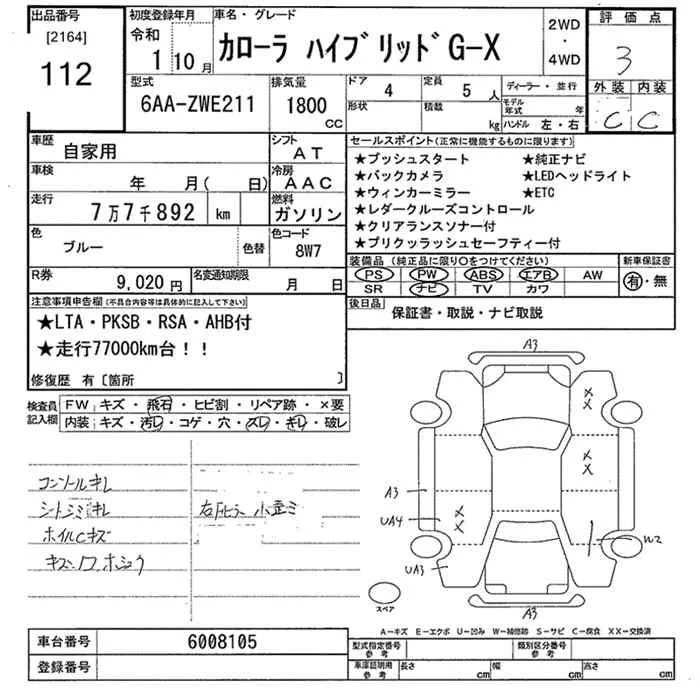 出品番号
[2164]
112
初度登録年月
令和
1 10 月
車名・グレード
カローラ ハイブリッド G-X
2WD
・
4WD
評価点
3
外装 内装
C C
型式
6AA-ZWE211
排気量
1800
CC
ドア
4
定員
5 人
形状
積載
kg
ディーラー・並行
モデル年式 年
ハンドル 左・右
車歴
自家用
シフト
AT
車検
年 月( 日)
冷房
AAC
走行
7万7千892 km
燃料
ガソリン
色
ブルー
色替
色コード
8W7
R券
9,020 円
名変通知期限
月 日
セールスポイント(正常に機能するものに限ります)
★プッシュスタート ★純正ナビ
★バックカメラ ★LEDヘッドライト
★ウィンカーミラー ★ETC
★レダークルーズコントロール
★クリアランスソナー付
★プリクッラッシュセーフティー付
装備品(純正品に限り〇をつけてください)
PS PW ABS エアB AW
SR ナビ TV カワ
新車保証書
有・無
後日品
保証書・取説・ナビ取説
注意事項申告欄(不具合内容等は具体的に記入して下さい)
★LTA・PKSB・RSA・AHB付
★走行77000km台！！
修復歴 有〔箇所 〕
検査員
記入欄
FW キズ・飛石・ヒビ割・リペア跡・×要
内装 キズ・汚レ・コゲ・穴・スレ・キレ・破レ
コンソールキレ
シートシミキレ
ホイルCキズ
A3
××
××
A3
UA4
××
UA3
W2
A3
スペア
A―キズ E―エクボ U―凹み W―補修跡 S―サビ C―腐食 XX―交換済
車台番号
6008105
登録番号
型式指定番号
参考
類別区分番号
参考
車庫証明用
参考
長さ cm
幅 cm
高さ cm